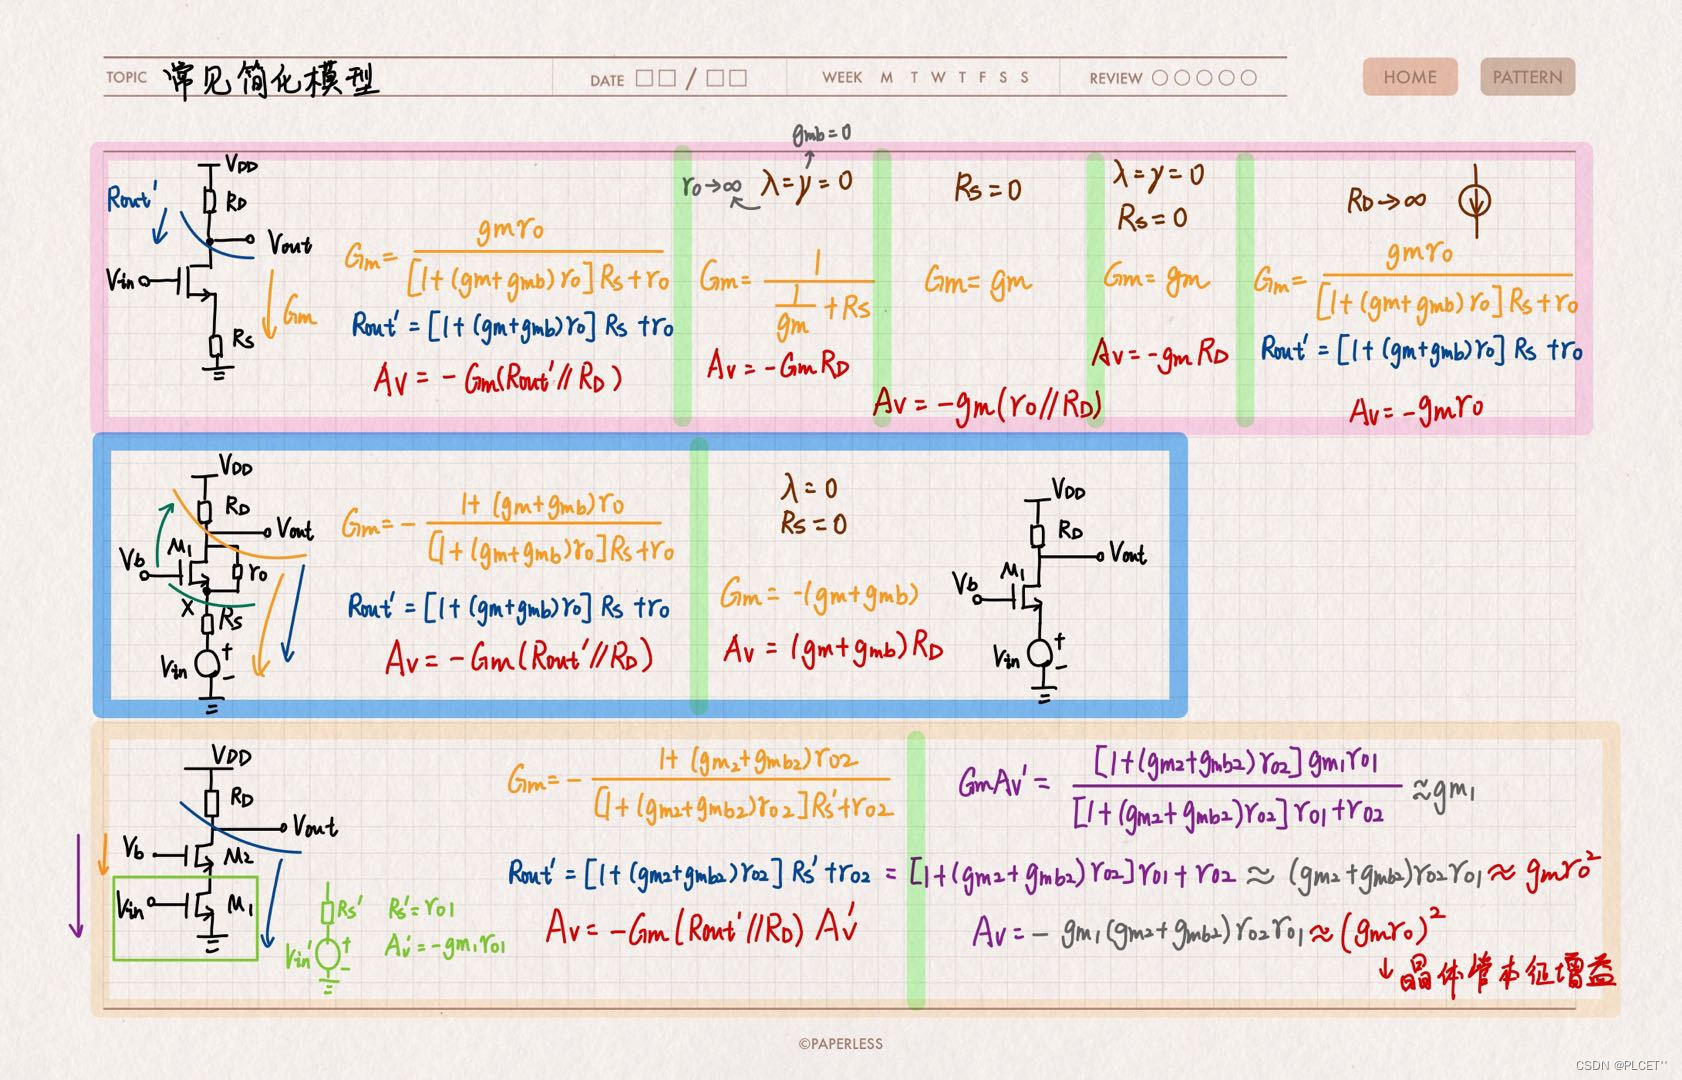 TOPIC 常见简化模型 DATE □□/□□ WEEK M T W T F S S REVIEW ○○○○○ HOME PATTERN
VDD
RD
Rout'
Vout
Vin
Gm
Rs
Gm = gmro / [1+(gm+gmb)ro]Rs+ro
Rout' = [1+(gm+gmb)ro] Rs +ro
Av = - Gm(Rout'//RD)
gmb=0
ro→∞ λ=γ=0
Gm = 1 / (1/gm + Rs)
Av = -GmRD
Rs=0
Gm = gm
Av = -gm(ro//RD)
λ=γ=0
Rs=0
Gm = gm
Av = -gmRD
RD→∞
Gm = gmro / [1+(gm+gmb)ro]Rs+ro
Rout' = [1+(gm+gmb)ro] Rs +ro
Av = -gmro
VDD
RD
Vout
M1
Vb
ro
X
Rs
Vin
+
-
Gm = - 1+(gm+gmb)ro / [1+(gm+gmb)ro]Rs+ro
Rout' = [1+(gm+gmb)ro] Rs +ro
Av = -Gm(Rout'//RD)
λ=0
Rs=0
Gm = -(gm+gmb)
Av = (gm+gmb)RD
VDD
RD
Vout
M1
Vb
Vin
+
-
VDD
RD
Vout
Vb
M2
Vin
M1
Rs'
Vin'
+
-
Rs'=ro1
Av'=-gm1ro1
Gm = - 1+(gm2+gmb2)ro2 / [1+(gm2+gmb2)ro2]Rs'+ro2
Rout' = [1+(gm2+gmb2)ro2] Rs'+ro2 = [1+(gm2+gmb2)ro2]ro1+ro2 ≈ (gm2+gmb2)ro2ro1 ≈ gmro²
Av = -Gm(Rout'//RD) Av'
GmAv' = [1+(gm2+gmb2)ro2]gm1ro1 / [1+(gm2+gmb2)ro2]ro1+ro2 ≈gm1
Av = - gm1(gm2+gmb2)ro2ro1 ≈ (gmro)²
↓晶体管本征增益
©PAPERLESS
CSDN @PLCET''